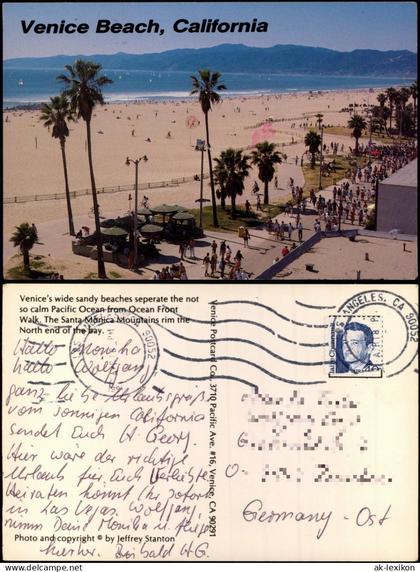 Venice Beach, California
Venice's wide sandy beaches seperate the not
so calm Pacific Ocean from Ocean Front
Walk. The Santa Monica Mountains rim the
North end of the bay.
Hallo Monika
Hallo Wolfgang
ganz liebe Urlaubsgrüße
vom sonnigen California
sendet Euch H. Georg.
Hier wäre der richtige
Urlaub für Euch Verliebte
Heiraten könnt Ihr sofort
in Las Vegas. Wolfgang,
nimm Deine Monika u. fliege
hierher.
Photo and copyright © by Jeffrey Stanton
Venice Postcard Co. 3710 Pacific Ave. #16, Venice, CA 90291
LOS ANGELES, CA 90052
Germany - Ost
© ak-lexikon.com